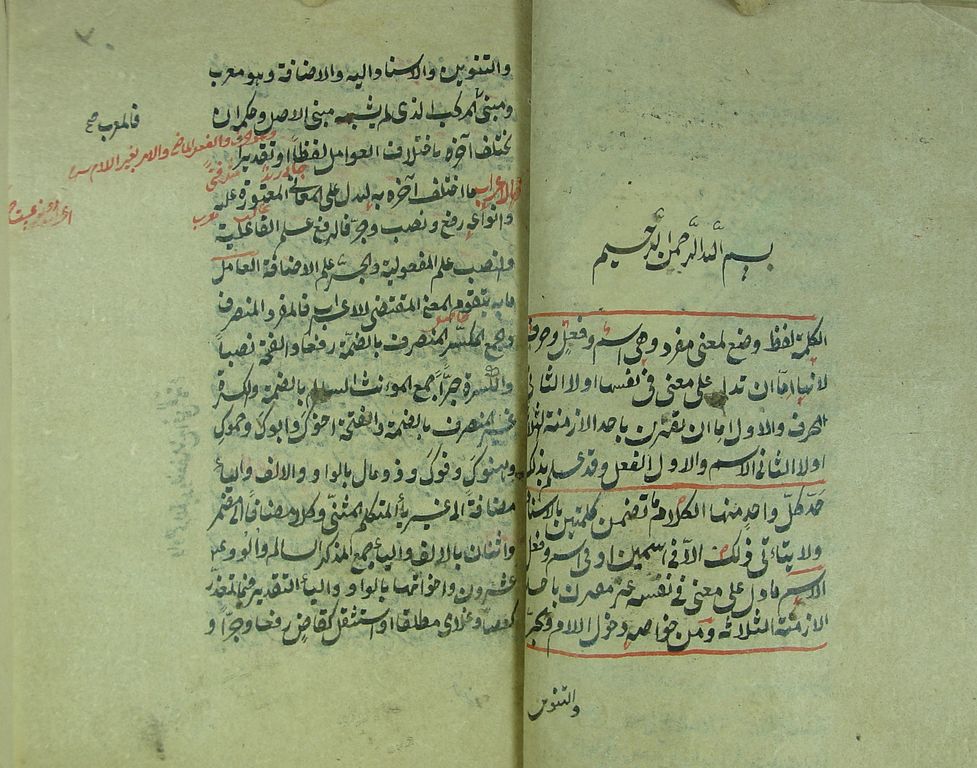 بسم الله الرحمن الرحيم
الكلمة لفظ وضع لمعنى مفرد وهى اسم وفعل وحرف
لانها اما ان تدل على معنى فى نفسها اولا الثانى
الحرف والاول اما ان تقترن باحد الازمنة الثلاثة
اولا الثانى الاسم والاول الفعل وقد علم بذلك
حد كل واحد منها الكلام ما تضمن كلمتين بالاسناد
ولا يتاتى ذلك الا فى اسمين او فى اسم وفعل
الاسم ما دل على معنى فى نفسه غير مقترن باحد
الازمنة الثلاثة ومن خواصه دخول اللام والجر
والتنوين
والتنوين والاسناد اليه والاضافة وهو معرب
ومبنى المركب الذى لم يشبه مبنى الاصل وحكمه ان
يختلف آخره باختلاف العوامل لفظا او تقديرا
الاعراب ما اختلف آخره به ليدل على المعانى المعتورة عليه
وانواعه رفع ونصب وجر فالرفع علم الفاعلية
والنصب علم المفعولية والجر علم الاضافة العامل
ما به يتقوم المعنى المقتضى للاعراب فالمفرد المنصرف
والجمع المكسر المنصرف بالضمة رفعا والفتحة نصبا
والكسرة جرا جمع المؤنث السالم بالضمة والكسرة
غير المنصرف بالضمة والفتحة اخوك وابوك وحموك
وهنوك وفوك وذو مال بالواو والالف والياء
مضافة الى غير ياء المتكلم المثنى وكلا مضافا الى مضمر
واثنان بالالف والياء جمع المذكر السالم والو و
عشرون واخواتها بالواو والياء التقدير فيما تعذر
كعصا وغلامى مطلقا او استثقل كقاض رفعا وجرا و
فالمعرب صح
والفعل الماضى والامر بغير اللام